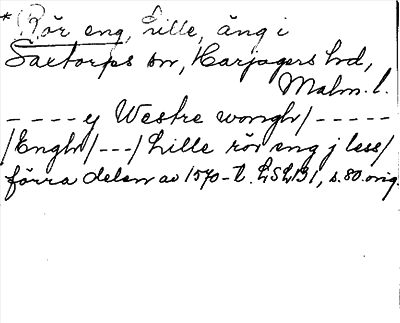 * Rör eng, Lille, äng i
Saxtorps sn, Harjagers hd,
Malm. l.
- - - - y Westre wongh/ - - - - -
/Engh/ - - -/ Lille rör eng j less/
förra delen av 1570-t. LSLB1, s. 80. orig.